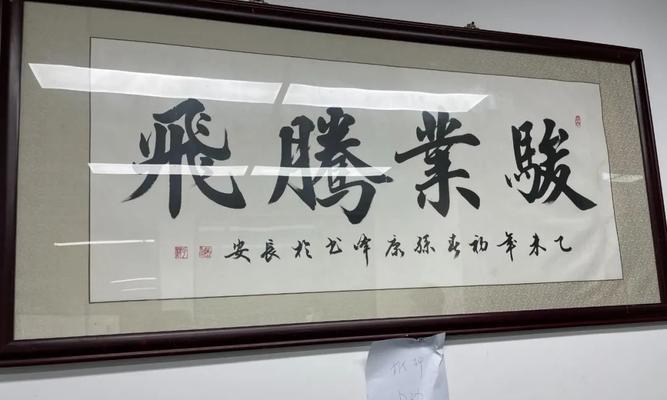 駿業騰飛
乙未年初春孫康峰书於長安